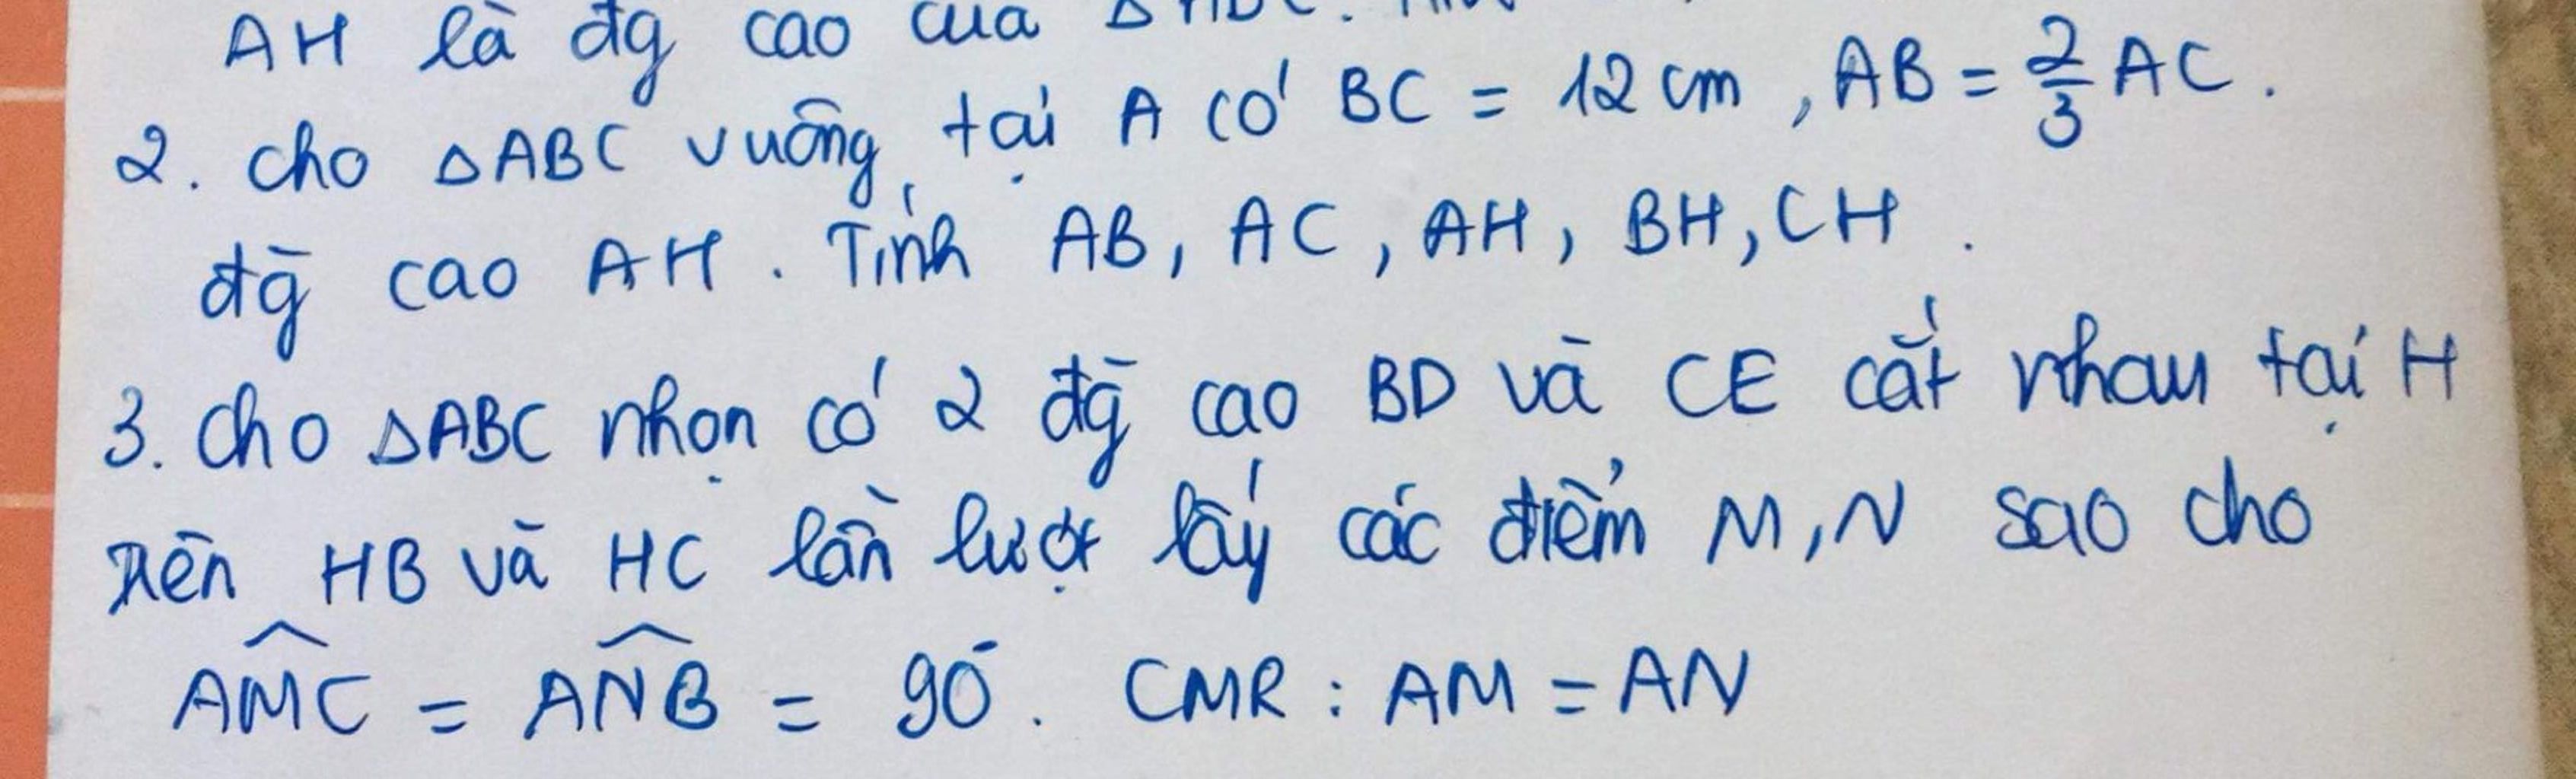 AH là đg cao của
2. cho △ABC vuông tại A có BC = 12 cm, AB = 2/3 AC.
đg cao AH. Tính AB, AC, AH, BH, CH.
3. Cho △ABC nhọn có 2 đg cao BD và CE cắt nhau tại H
trên HB và HC lần lượt lấy các điểm M, N sao cho
\widehat{AMC} = \widehat{ANB} = 90°. CMR : AM = AN